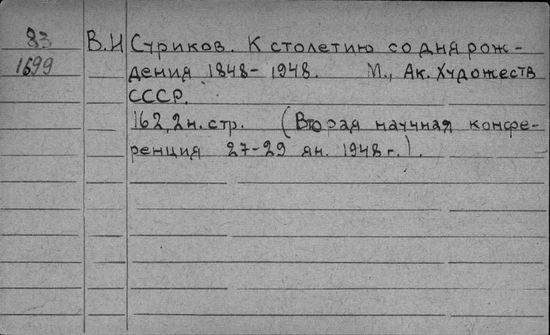 83
1699
В.И Суриков. К столетию со дня рож-
дения 1848-1948. М., Ак. Художеств
СССР.
162, 2 н. стр. (Вторая научная конфе-
ренция 27-29 ян. 1948 г.).